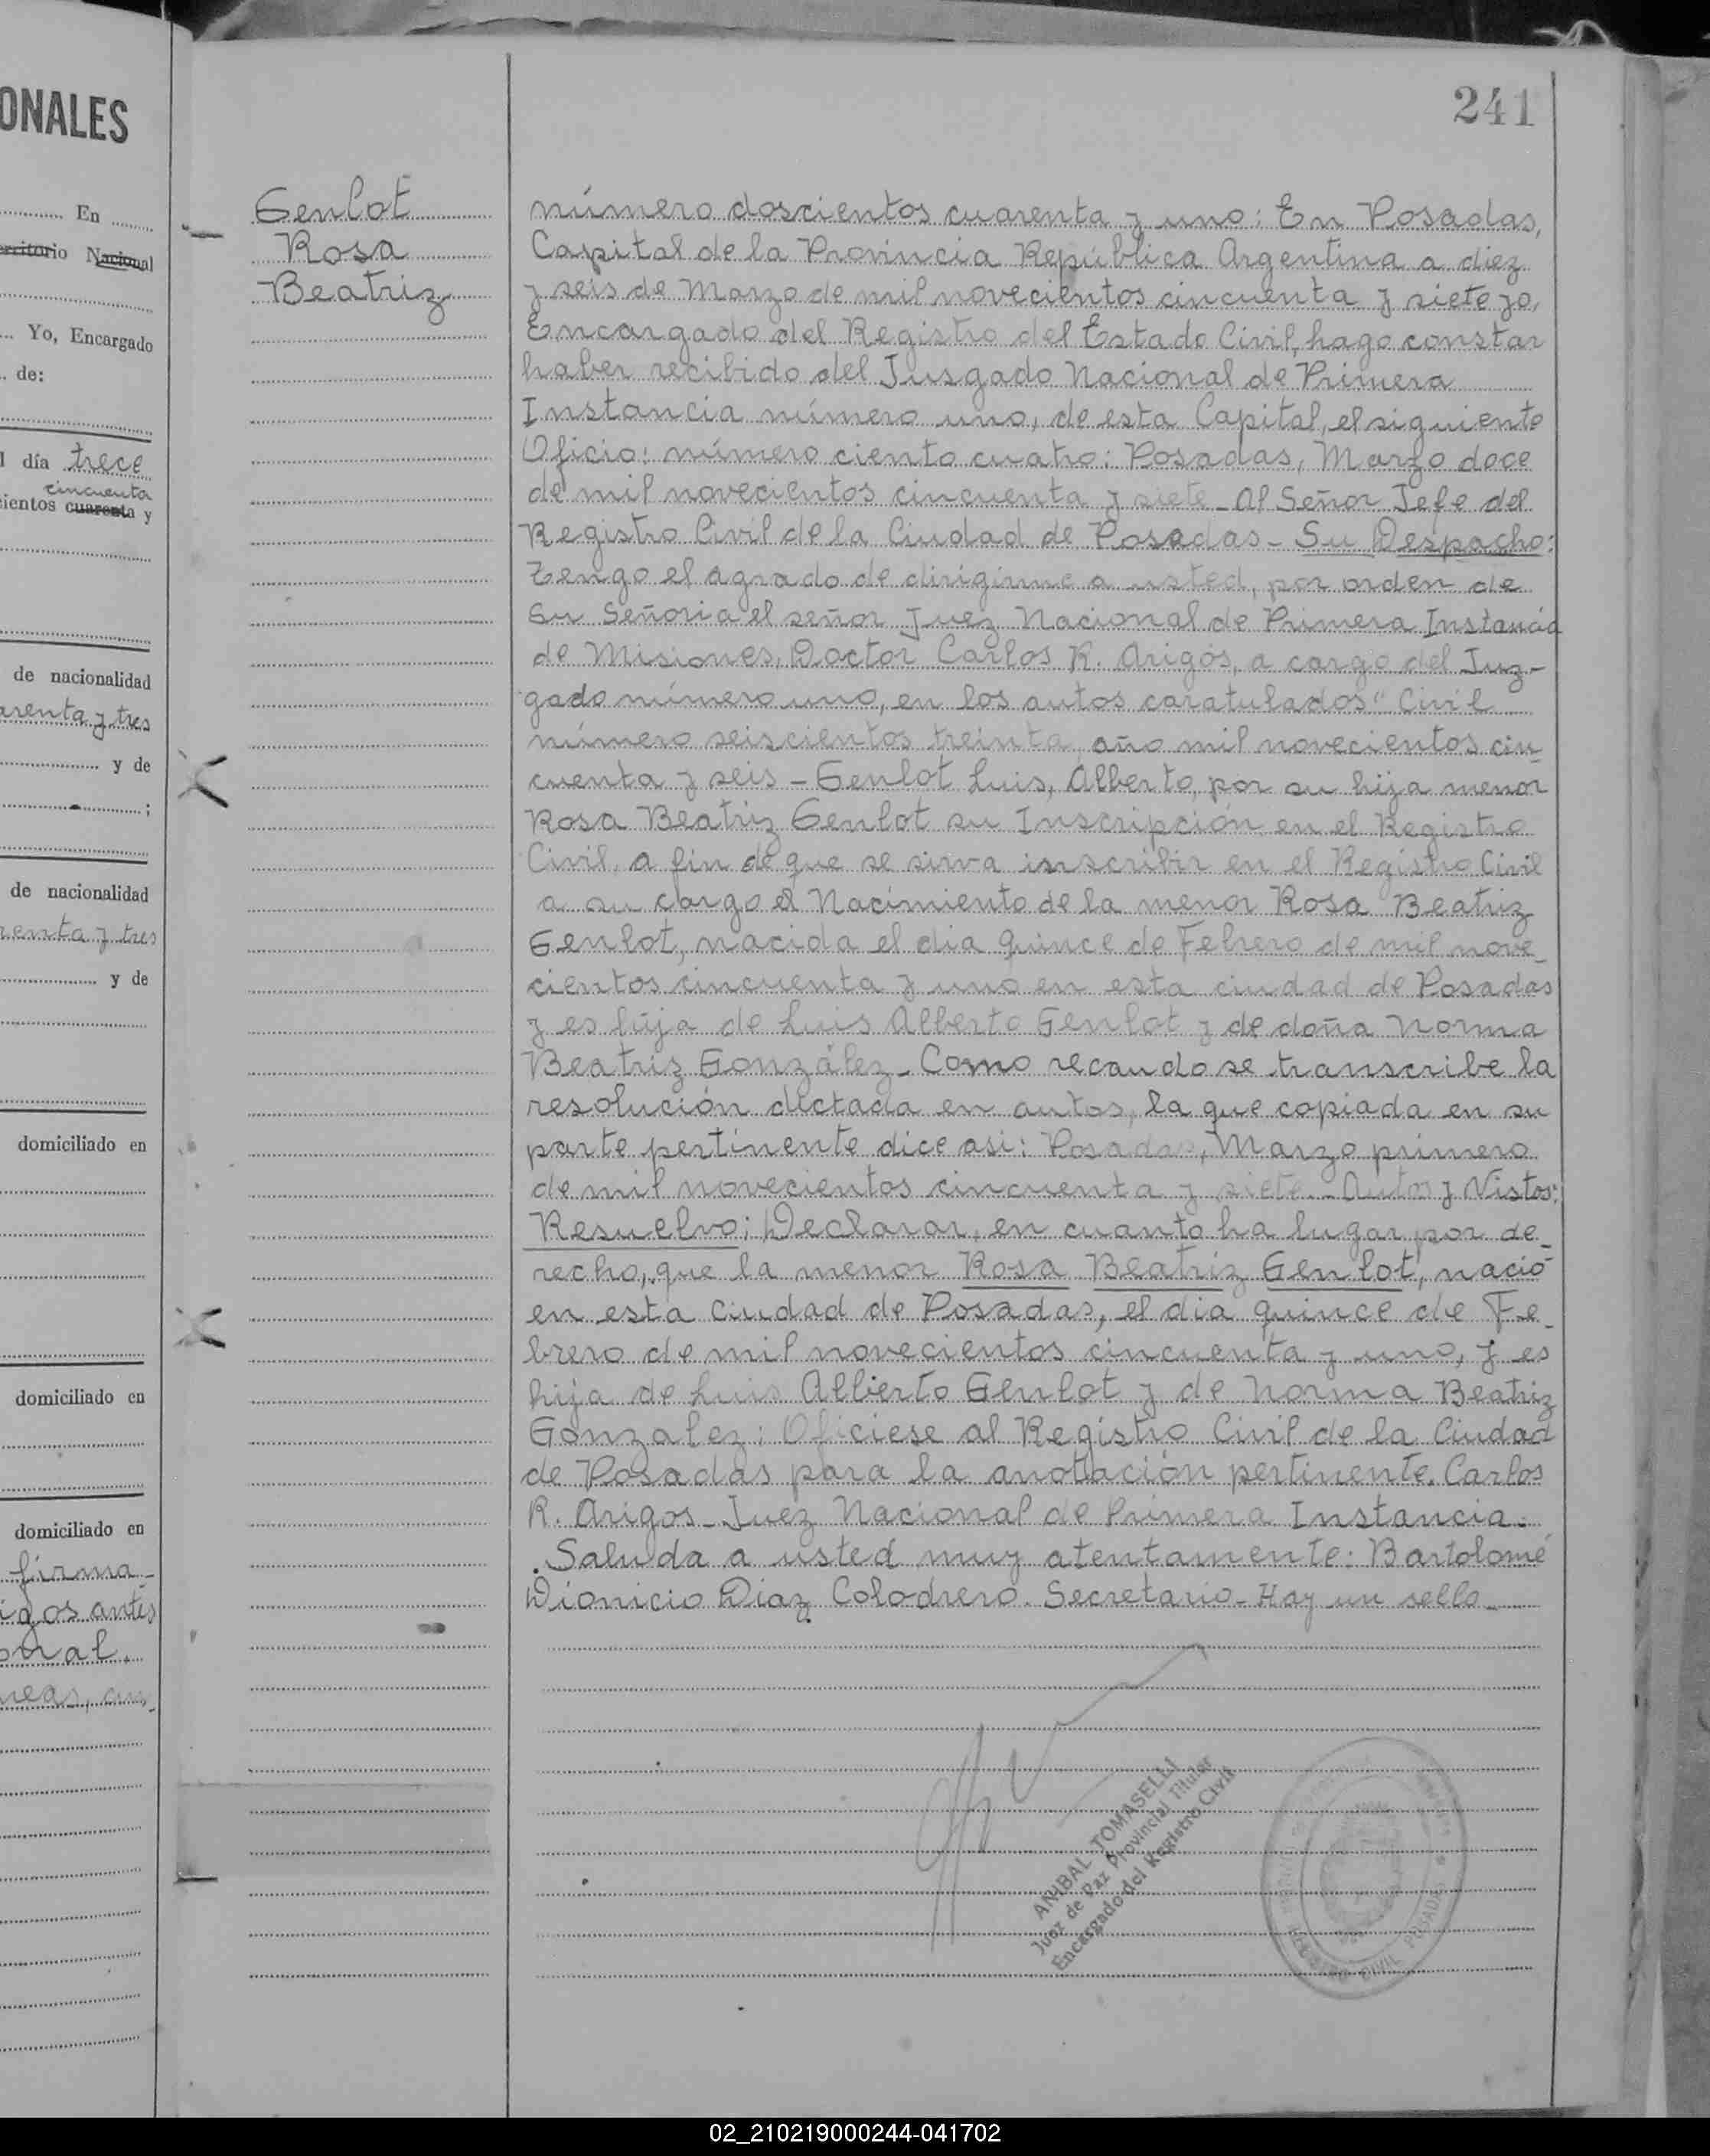 ONALES
En
erritorio Nacional
Yo, Encargado
de:
l día trece
cincuenta
cientos cuarenta y
de nacionalidad
arenta y tres
y de
de nacionalidad
renta y tres
y de
domiciliado en
domiciliado en
domiciliado en
firma
igos antes
onal.
241
Genlot
Rosa
Beatriz
número doscientos cuarenta y uno: En Posadas,
Capital de la Provincia República Argentina a diez
y seis de Marzo de mil novecientos cincuenta y siete yo,
Encargado del Registro del Estado Civil, hago constar
haber recibido del Jusgado Nacional de Primera
Instancia número uno, de esta Capital, el siguiente
Oficio: número ciento cuatro: Posadas, Marzo doce
de mil novecientos cincuenta y siete - Al Señor Jefe del
Registro Civil de la Ciudad de Posadas - Su Despacho:
Tengo el agrado de dirigirme a usted, por orden de
Su Señoria el señor Juez Nacional de Primera Instancia
de Misiones, Doctor Carlos R. Arigós, a cargo del Juz-
gado número uno, en los autos caratulados "Civil
número seiscientos treinta, año mil novecientos cin-
cuenta y seis - Genlot Luis, Alberto, por su hija menor
Rosa Beatriz Genlot su Inscripción en el Registro
Civil, a fin de que se sirva inscribir en el Registro Civil
a su cargo el Nacimiento de la menor Rosa Beatriz
Genlot, nacida el dia quince de Febrero de mil nove-
cientos cincuenta y uno en esta ciudad de Posadas
y es hija de Luis Alberto Genlot y de doña Norma
Beatriz González - Como recaudo se transcribe la
resolución dictada en autos, la que copiada en su
parte pertinente dice asi: Posadas, Marzo primero
de mil novecientos cincuenta y siete - Autos y Vistos:
Resuelvo; Declarar, en cuanto ha lugar por de-
recho, que la menor Rosa Beatriz Genlot, nació
en esta Ciudad de Posadas, el dia quince de Fe-
brero de mil novecientos cincuenta y uno, y es
hija de Luis Alberto Genlot y de Norma Beatriz
Gonzalez; Oficiese al Registro Civil de la Ciudad
de Posadas para la anotación pertinente. Carlos
R. Arigos - Juez Nacional de Primera Instancia.
Saluda a usted muy atentamente: Bartolomé
Dionicio Diaz Colodrero. Secretario - Hay un sello -
ANIBAL TOMASELLI
Juez de Paz Provincial Titular
Encargado del Registro Civil
REGISTRO CIVIL POSADAS
02_210219000244-041702